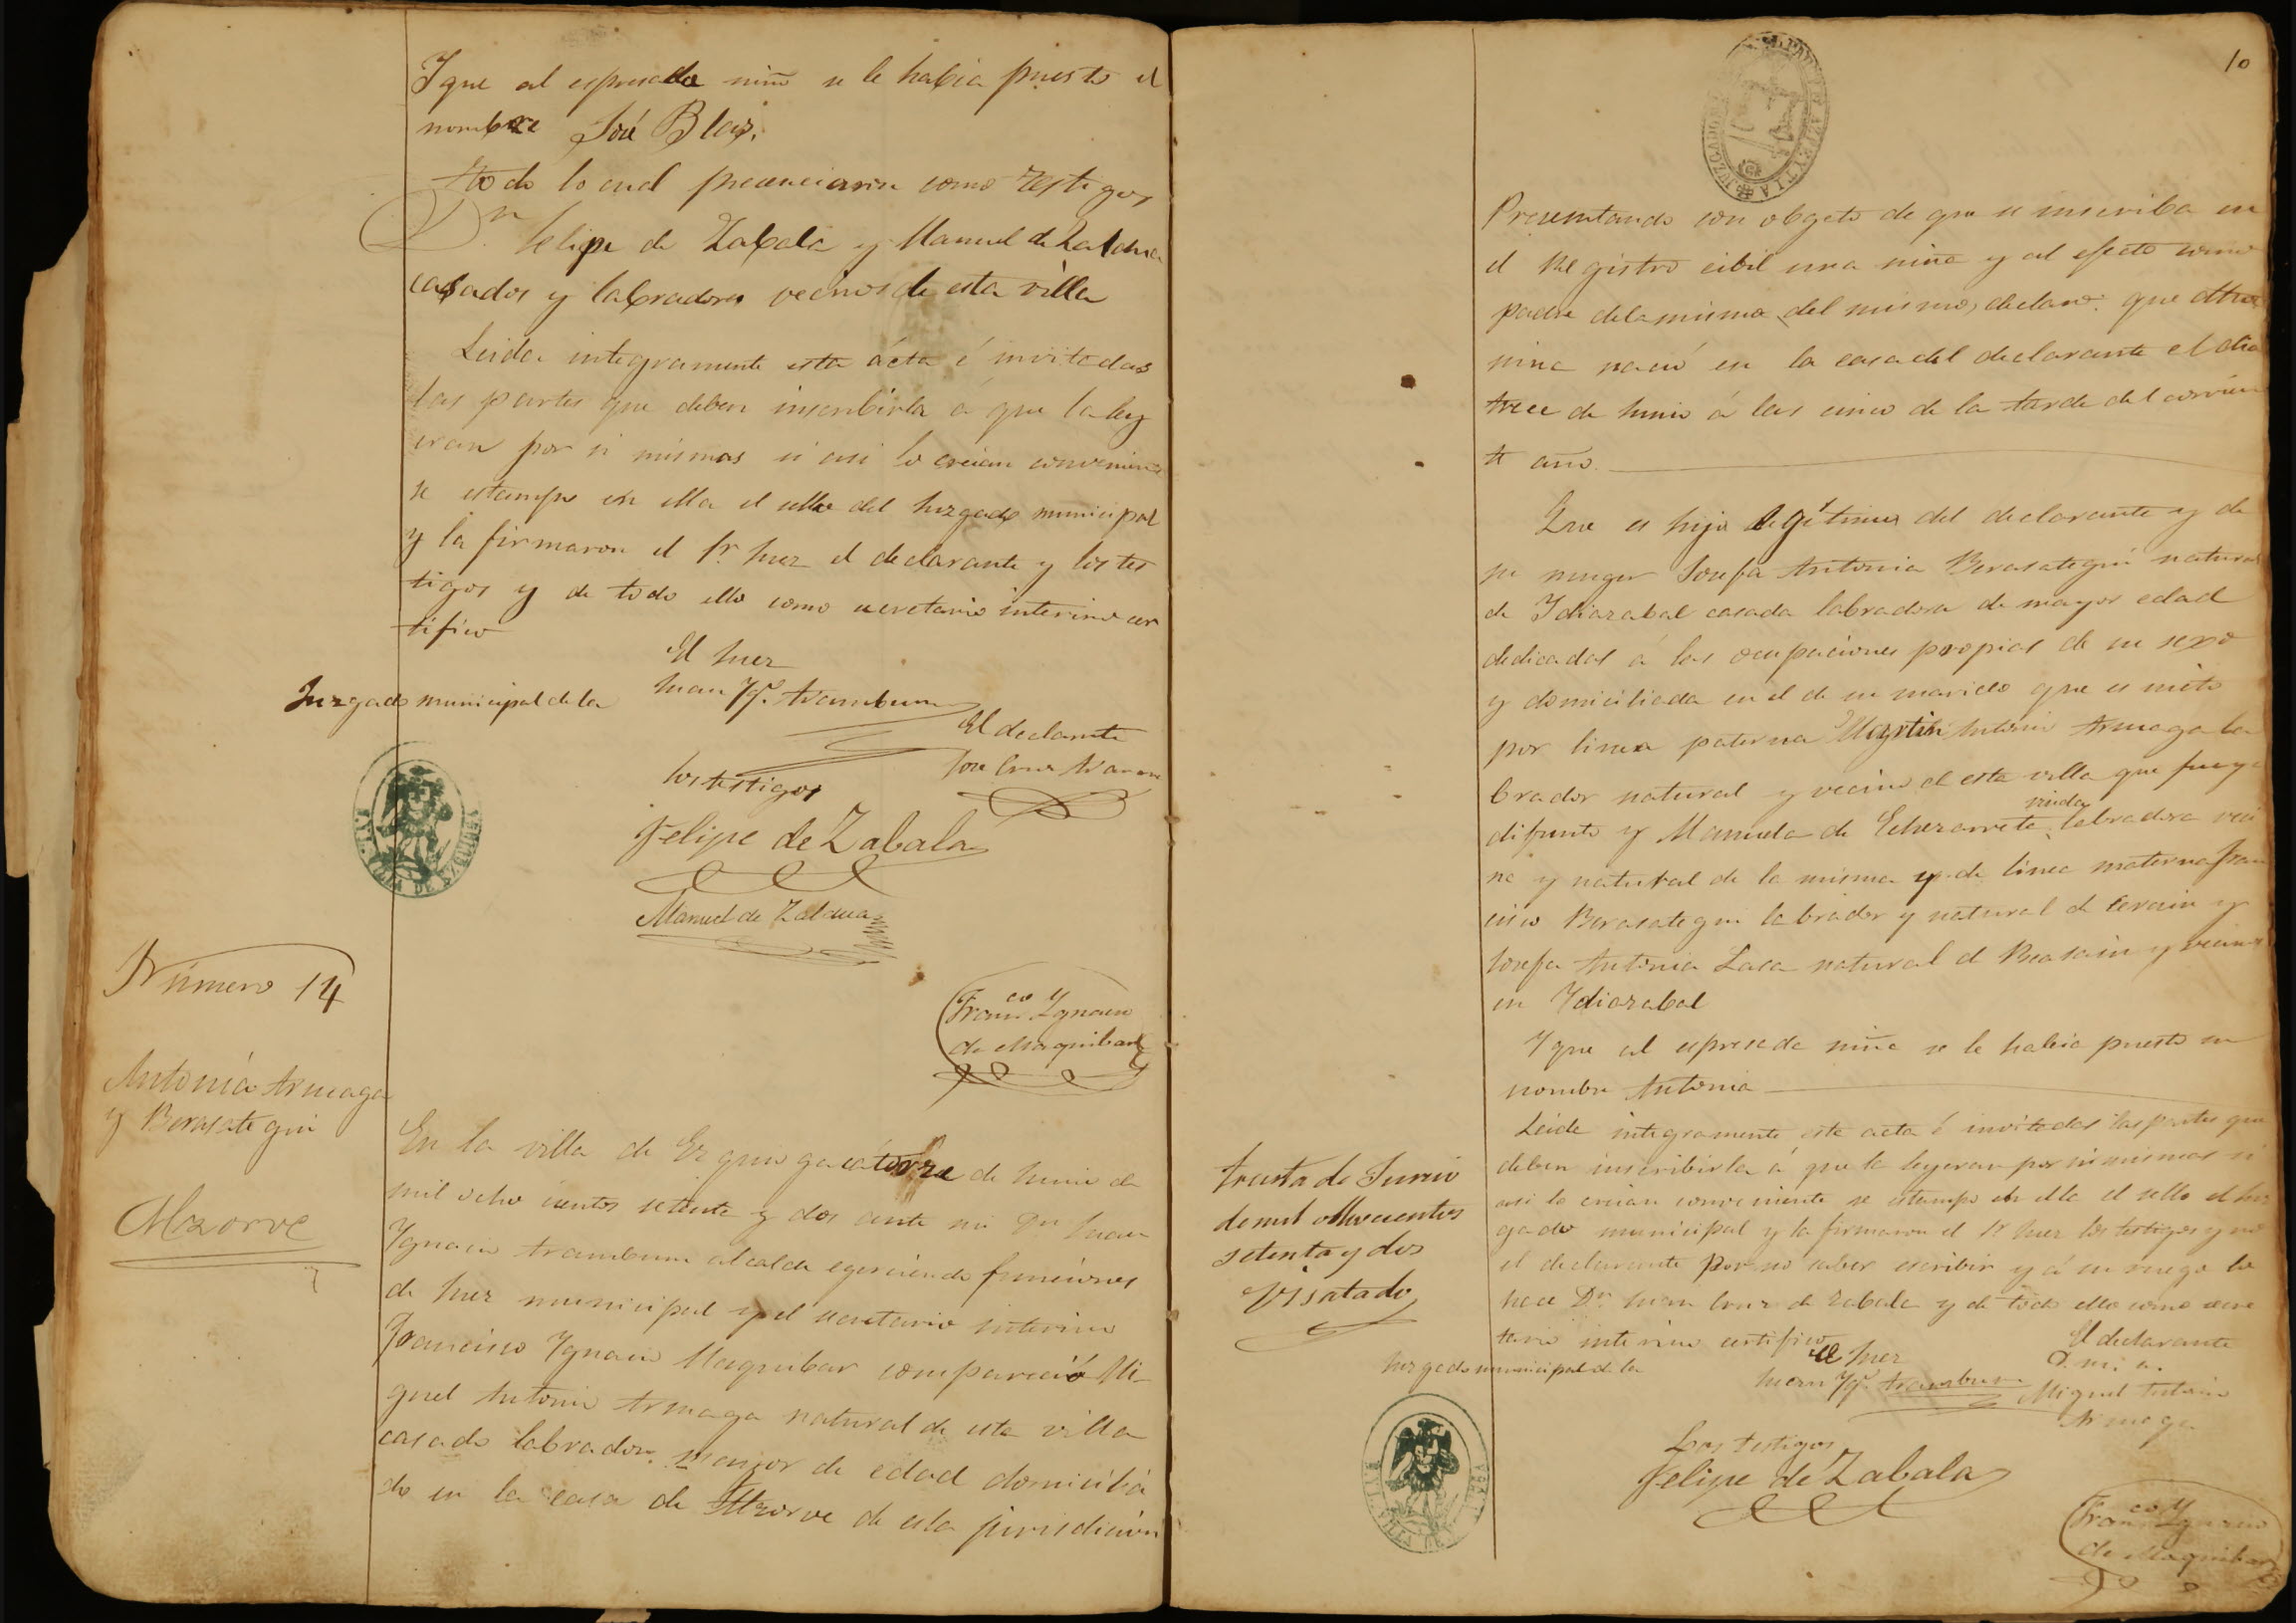 Y que al espresado niño se le habia puesto el
nombre José Blas.
Todo lo cual presenciaron como testigos
Dn Felipe de Zabala y Manuel de Zaldua
casados y labradores vecinos de esta villa
Leida integramente esta ácta é invitadas
las partes que deben inscribirla á que la ley
eran por si mismas si asi lo creian conveniente
se estampo en ella el sello del Juzgado municipal
y la firmaron el Sr. Juez el declarante y los tes
tigos y de todo ello como secretario interino cer
tifico
El Juez
Juan Yg.º Aramburu
Juzgado municipal de la
El declarante
Jose Cruz
los testigos
Felipe de Zabala
Manuel de Zaldua
Franco Ygnacio
de Maquibar
Número 14
Antonia Armaga
y Berasategui
Alzorve
En la villa de Ezquioga catorze de Junio de
mil ocho cientos setenta y dos ante mi Dn Juan
Ygnacio Aramburu alcalde egerciendo funciones
de Juez municipal y el secretario interino
Francisco Ygnacio Maquibar compareció Mi-
guel Antonio Armaga natural de esta villa
casado labrador mayor de edad domicilia
do en la casa de Alzorve de esta jurisdicion
10
JUZGADO DE AZPEYTIA
Presentando con obgeto de que se inscriba en
el Registro cibil una niña y al efecto como
padre de la misma del mismo, declaro: que dha
niña nació en la casa del declarante el dia
trece de Junio á las cinco de la tarde del corrien
te año.
Que es hija legitima del declarante y de
su muger Josefa Antonia Berasategui natural
de Ydiazabal casada labradora de mayor edad
dedicadas á las ocupaciones propias de su sexo
y domiciliada en el de su marido que es nieta
por linea paterna Martin Antonio Armaga la
brador natural y vecino de esta villa que fue ya
difunto y Manuela de Echezarreta viuda labradora veci
na y natural de la misma y de linea materna Fran
cisco Berasategui labrador y natural de Cerain y
Josefa Antonia Lasa natural de Beasain y vecinos
en Ydiazabal
Y que al espresada niña se le habia puesto su
nombre Antonia
Leida integramente esta acta é invitadas las partes que
deben inscribirla á que la leyeran por si mismas si
asi lo creian conveniente se estampo en ella el sello del Juz
gado municipal y la firmaron el Sr Juez los testigos y no
el declarante por no saber escribir y á su ruego lo
hace Dn Juan Cruz de Zabala y de todo ello como secre
tario interino certifico
treinta de Junio
de mil ochocientos
setenta y dos
Visatado
Juzgado municipal de la
El Juez
Juan Yg.º Aramburu
El declarante
Miguel Antonio
Armaga
Los testigos
Felipe de Zabala
Franco Ygnacio
de Maquibar